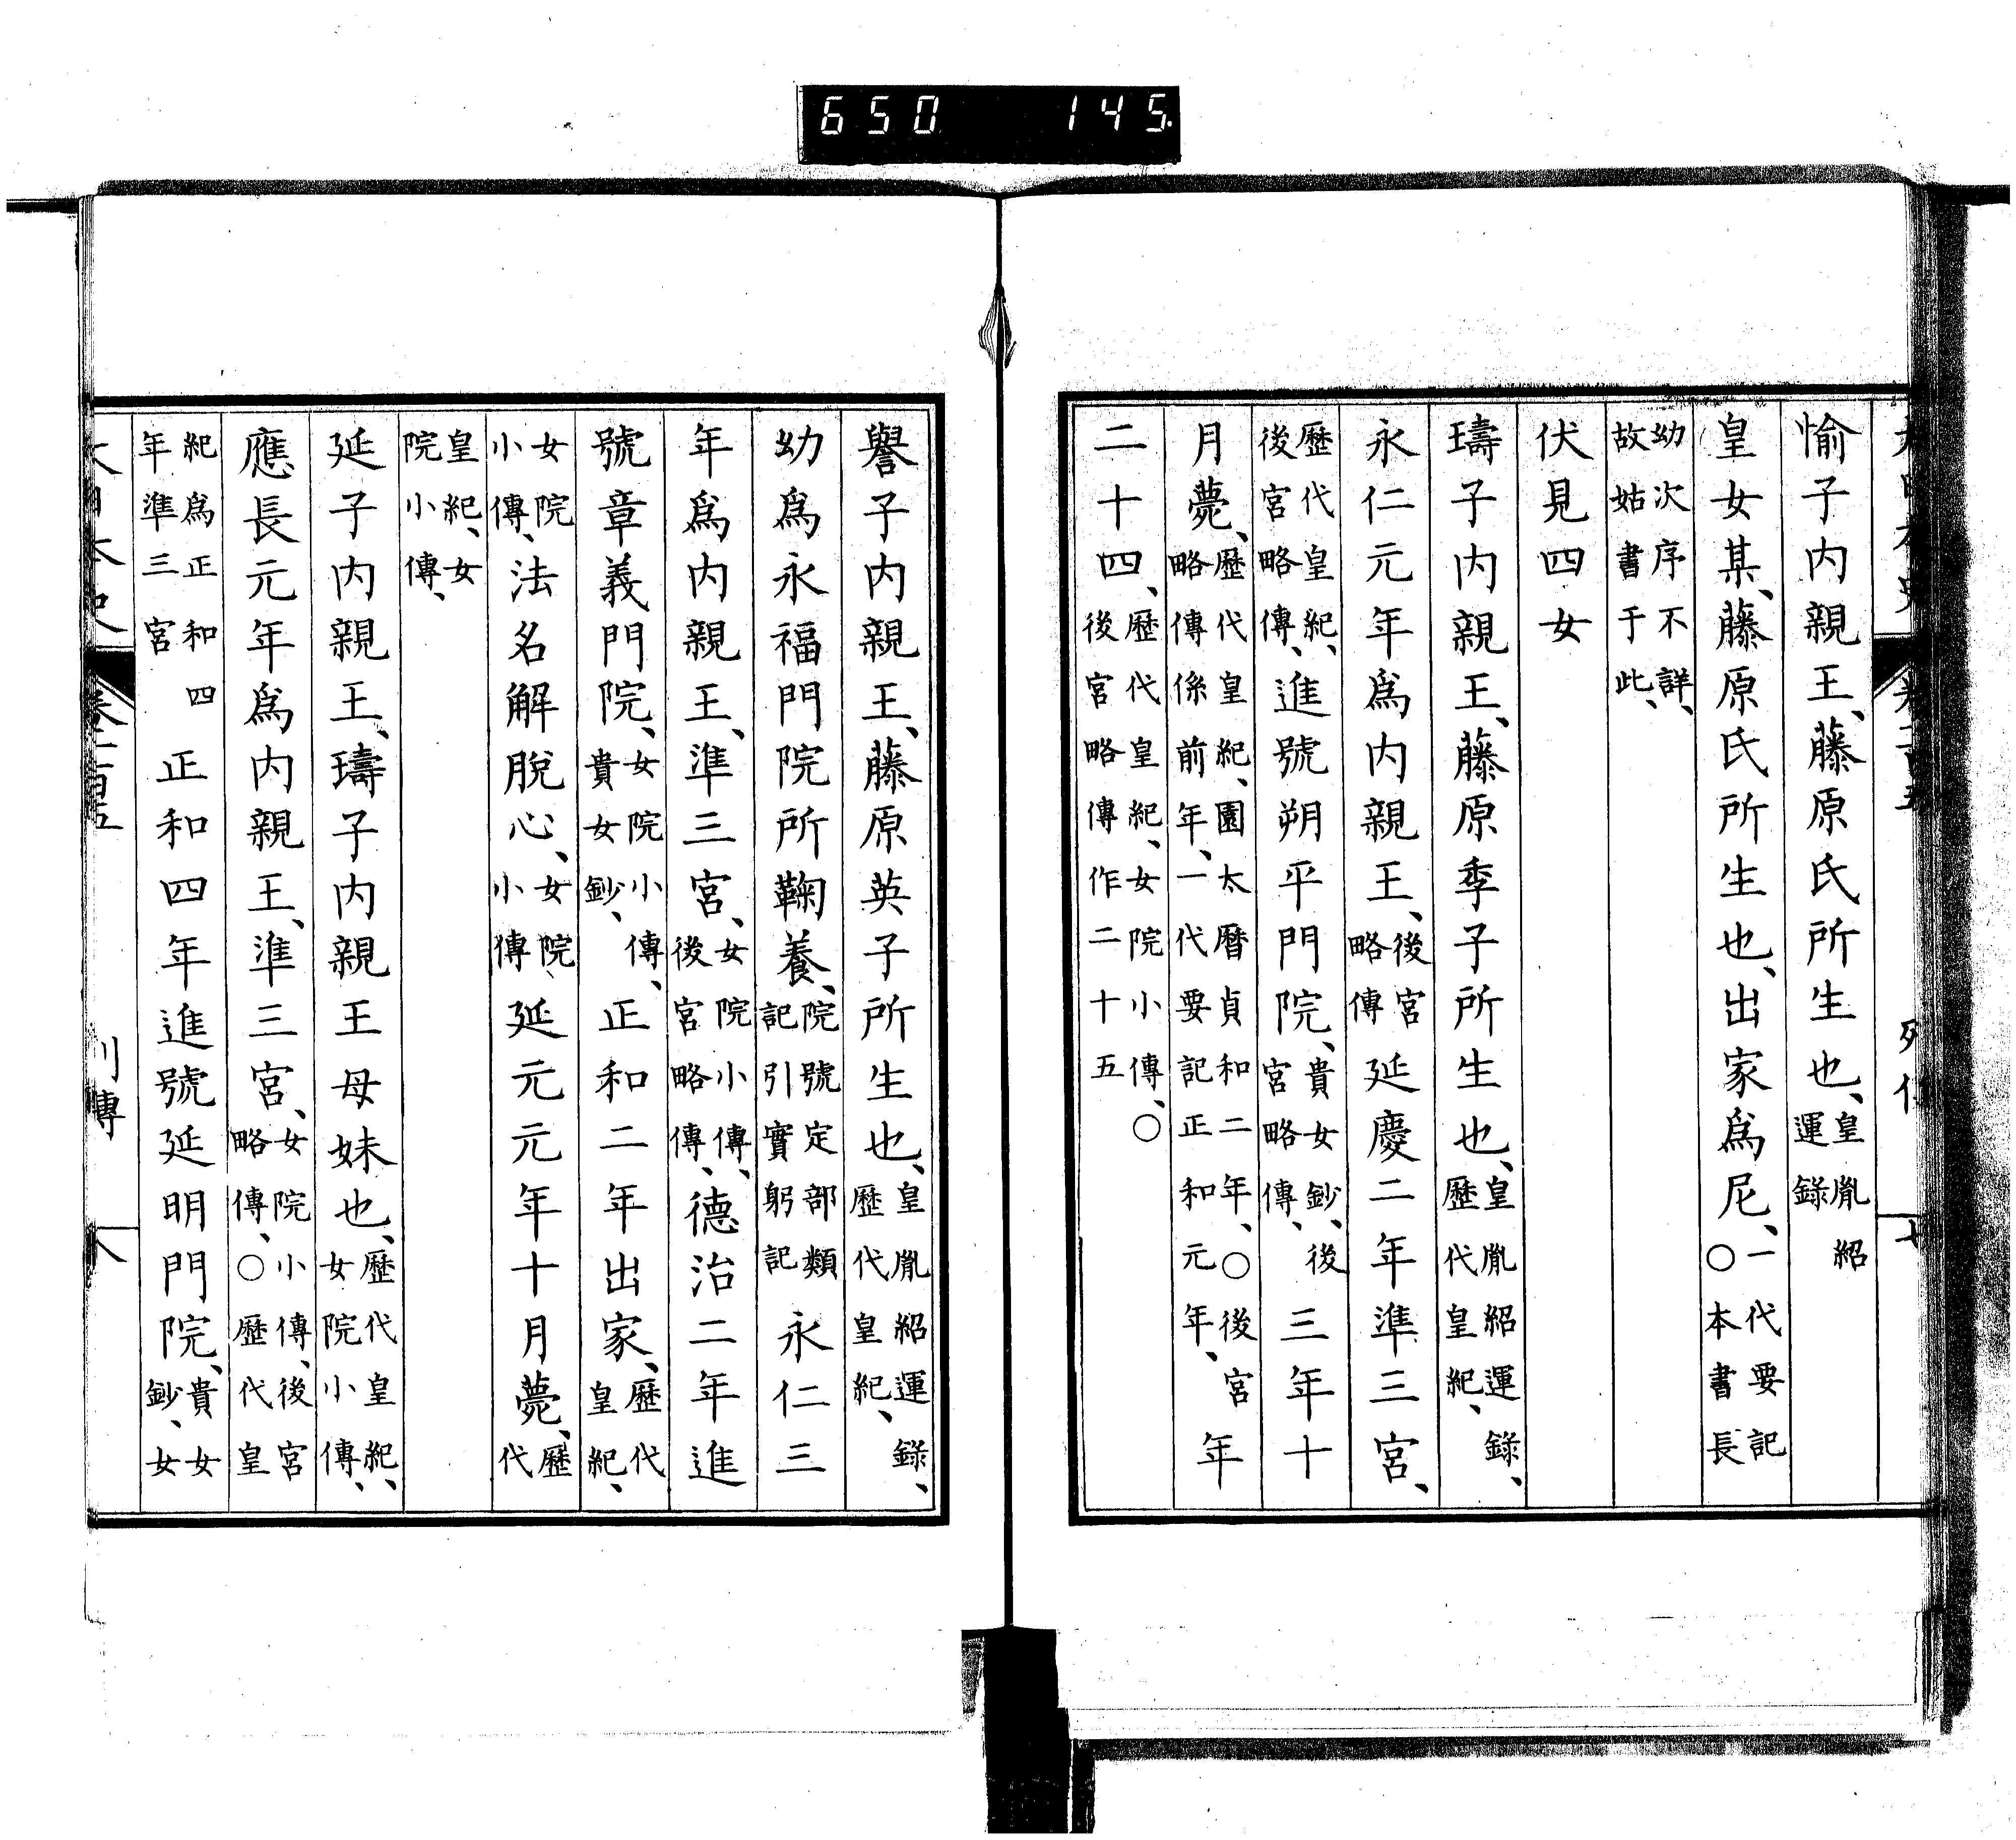 650 145.
愉子內親王、藤原氏所生也、皇胤紹運錄
皇女某、藤原氏所生也、出家爲尼、一代要記〇本書長
幼次序不詳、故姑書于此、
伏見四女
璹子內親王、藤原季子所生也、皇胤紹運錄、歷代皇紀、
永仁元年爲內親王、後宮略傳延慶二年準三宮、
歷代皇紀、後宮略傳、進號朔平門院、貴女鈔、後宮略傳、三年十
月薨、歷代皇紀、園太曆貞和二年、〇後宮略傳係前年、一代要記正和元年、年
二十四、歷代皇紀、女院小傳、〇後宮略傳作二十五
譽子內親王、藤原英子所生也、皇胤紹運錄、歷代皇紀、
幼爲永福門院所鞠養、院號定部類記引實躬記永仁三
年爲內親王、準三宮、女院小傳、後宮略傳、德治二年進
號章義門院、女院小傳、貴女鈔、正和二年出家、歷代皇紀、
女院小傳、法名解脫心、女院小傳延元元年十月薨、歷代
皇紀、女院小傳、
延子內親王、璹子內親王母妹也、歷代皇紀、女院小傳、
應長元年爲內親王、準三宮、女院小傳、後宮略傳、〇歷代皇
紀爲正和四年準三宮正和四年進號延明門院、貴女鈔、女
大日本史 卷一百五 列傳 八